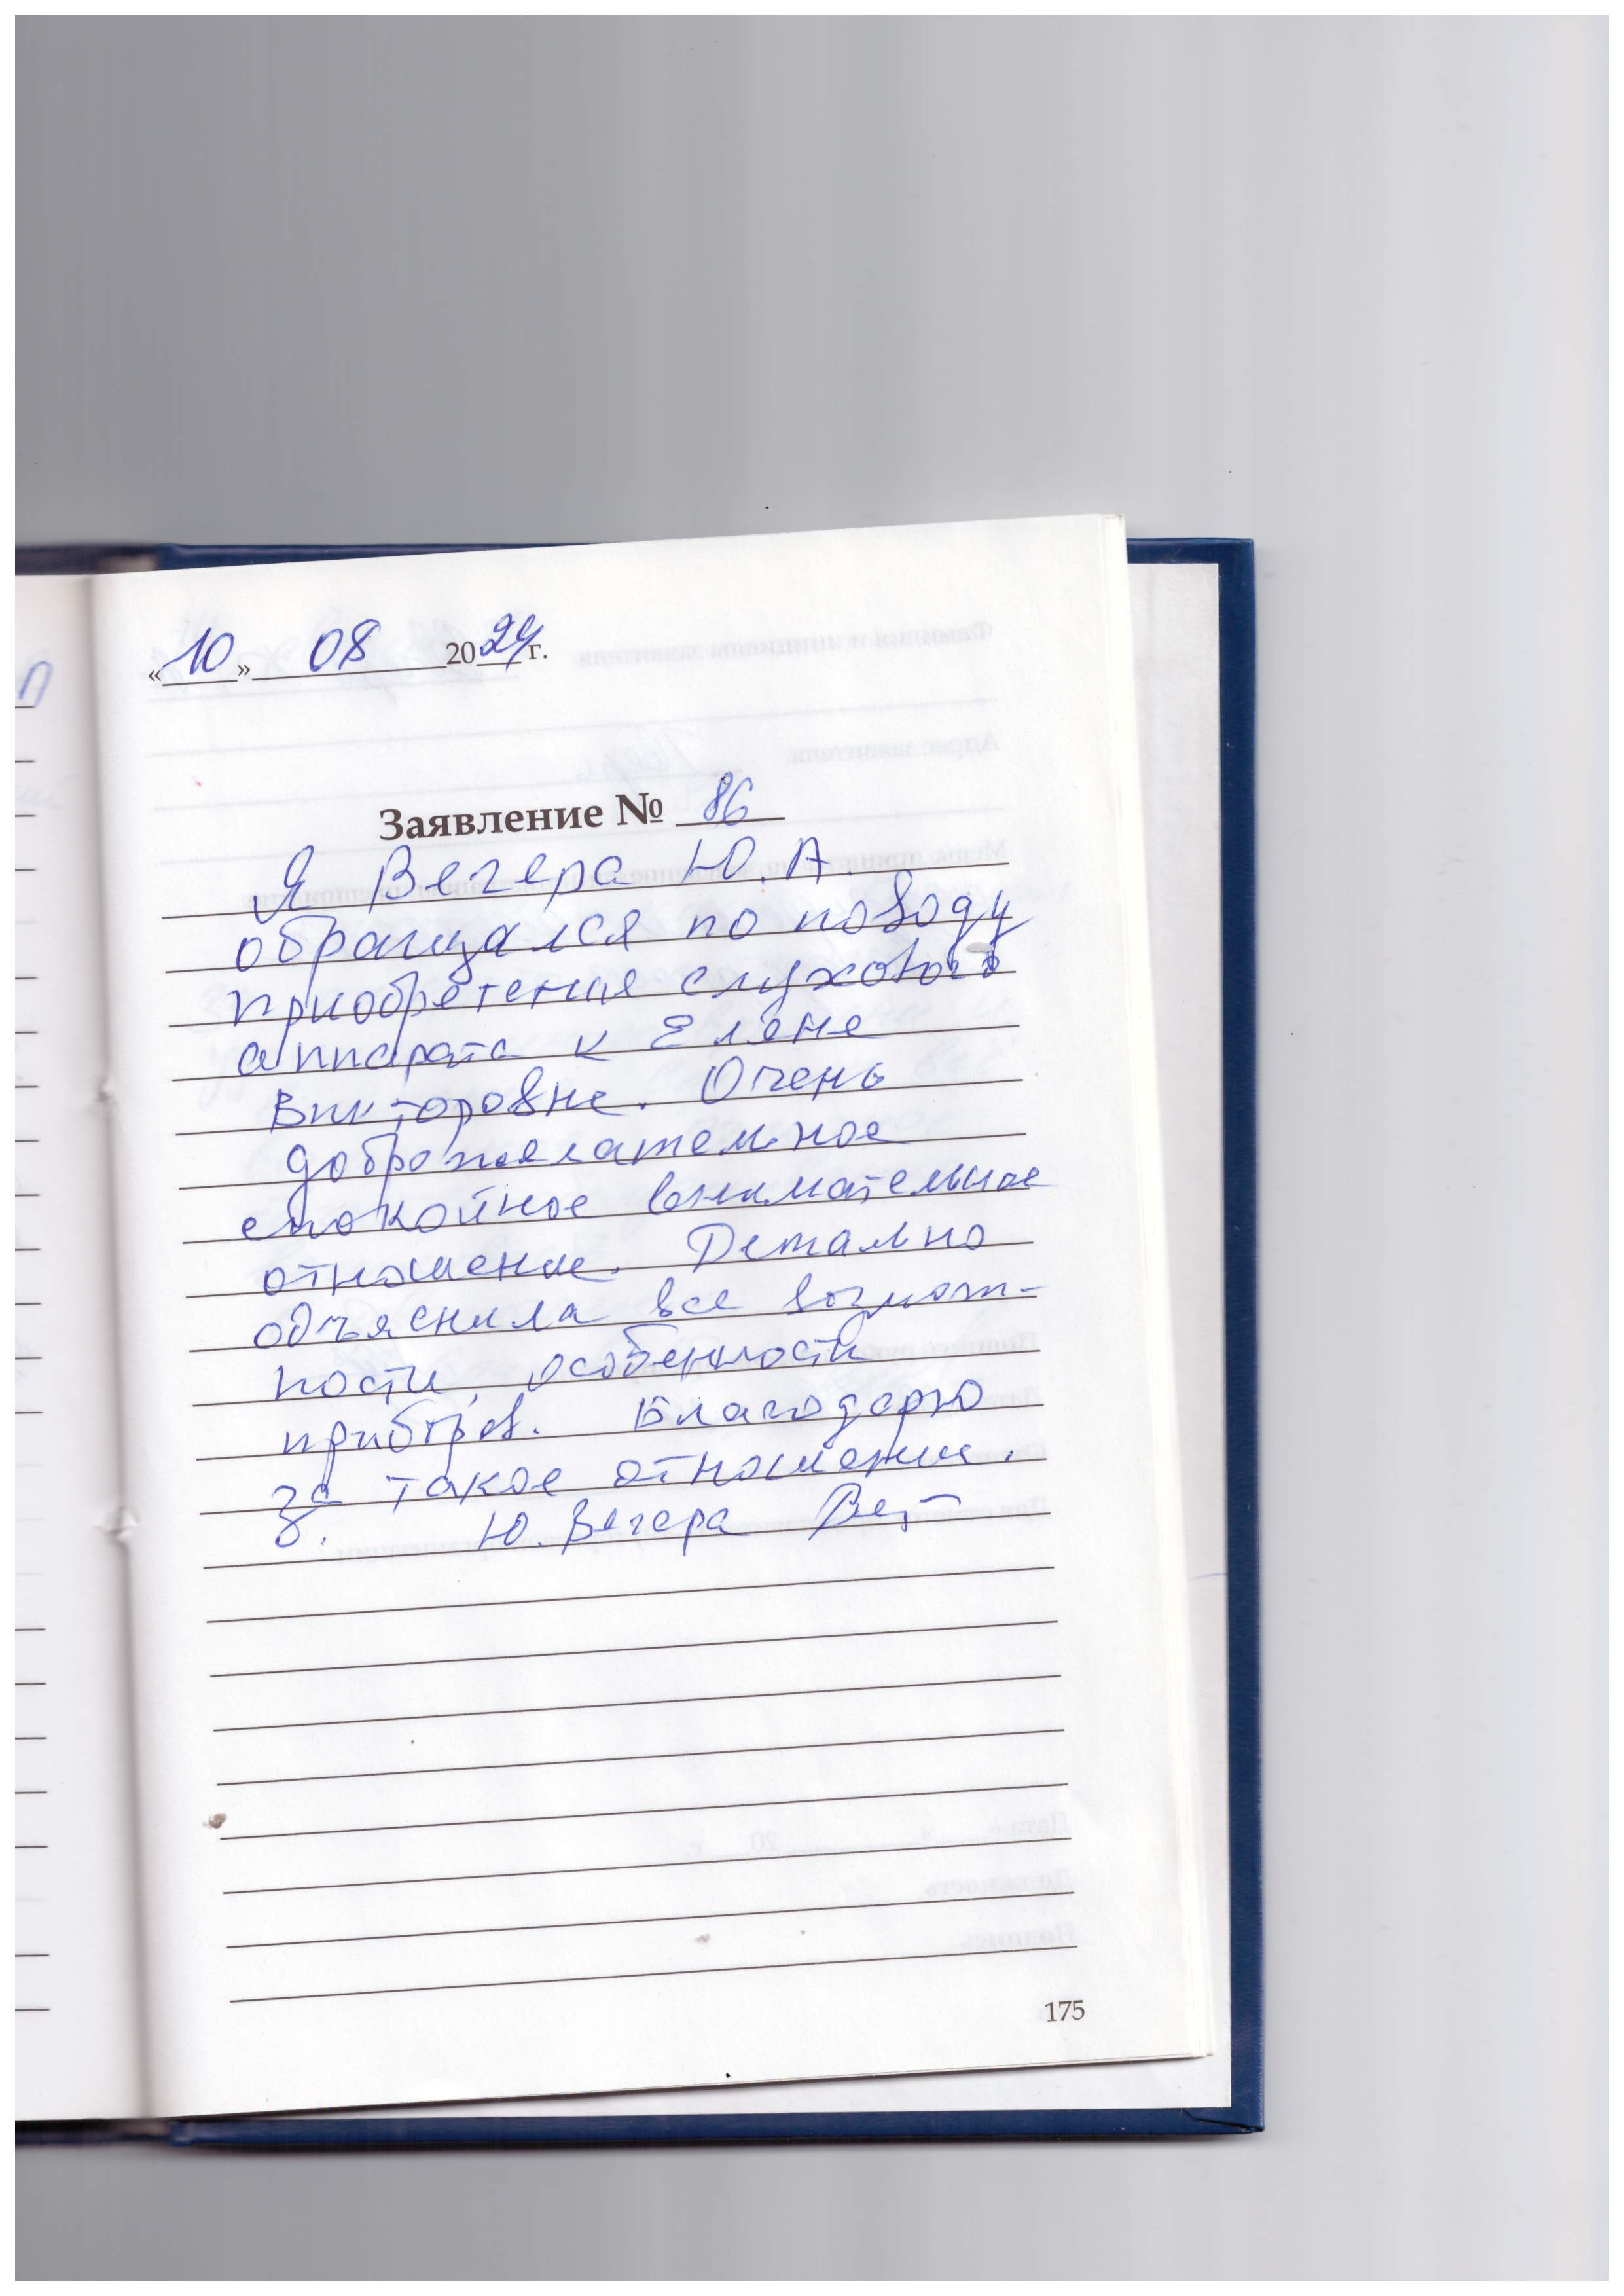 «10» 08 2024 г.
Заявление № 86
Я Вегера Ю.А
обращался по поводу
приобретения слухового
аппарата к Елене
Викторовне. Очень
доброжелательное
спокойное внимательное
отношение. Детально
объяснила все возмож-
ности, особенности
приборов. Благодарю
за такое отношение.
Ю. Вегера
175